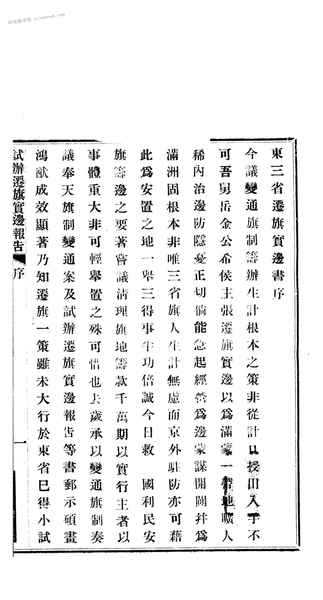 東三省遷旗實邊書序
今議變通旗制籌辦生計根本之策非從計口授田入手不
可吾舅岳金公希侯主張遷旗實邊以為滿蒙一帶地曠人
稀內治邊防隱憂正切倘能急起經營為邊蒙謀開闢并為
滿洲固根本非唯三省旗人生計無慮而京外駐防亦可藉
此為安置之地一舉三得事半功倍誠今日救 國利民安
旗籌邊之要著嘗議清理旗地籌款千萬期以實行主者以
事體重大非可輕舉置之殊可惜也去歲承以變通旗制奏
議奉天旗制變通案及試辦遷旗實邊報告等書郵示碩畫
鴻猷成效顯著乃知遷旗一策雖未大行於東省已得小試
試辦遷旗實邊報告 序 一